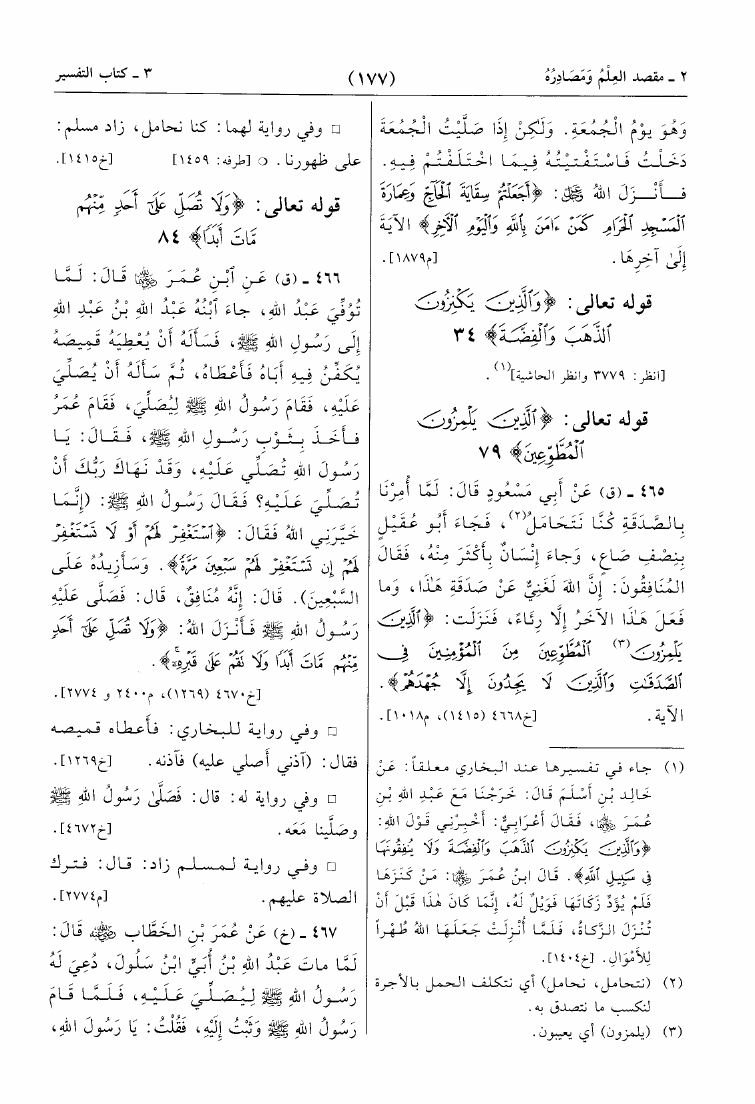 ٢ ـ مقصد العِلْمُ وَمَصَادِرُهُ
(١٧٧)
٣ ـ كتاب التفسير
وَهُوَ يَوْمُ الْجُمُعَةِ. وَلَكِنْ إِذَا صَلَّيْتُ الْجُمُعَةَ
دَخَلْتُ فَاسْتَفْتَيْتُهُ فِيمَا اخْتَلَفْتُمْ فِيهِ.
فَأَنْزَلَ اللهُ ﷿: ﴿أَجَعَلْتُمْ سِقَايَةَ ٱلْحَآجِّ وَعِمَارَةَ
ٱلْمَسْجِدِ ٱلْحَرَامِ كَمَنْ ءَامَنَ بِٱللَّهِ وَٱلْيَوْمِ ٱلْآخِرِ﴾ الآيَةَ
إِلَىٰ آخِرِهَا. [م١٨٧٩].
قوله تعالى: ﴿وَٱلَّذِينَ يَكْنِزُونَ
ٱلذَّهَبَ وَٱلْفِضَّةَ﴾ ٣٤
[انظر: ٣٧٧٩ وانظر الحاشية](١).
قوله تعالى: ﴿ٱلَّذِينَ يَلْمِزُونَ
ٱلْمُطَّوِّعِينَ﴾ ٧٩
٤٦٥ ـ (ق) عَنْ أَبِي مَسْعُودٍ قَالَ: لَمَّا أُمِرْنَا
بِالصَّدَقَةِ كُنَّا نَتَحَامَلُ(٢)، فَجَاءَ أَبُو عُقَيْلٍ
بِنِصْفِ صَاعٍ، وَجَاءَ إِنْسَانٌ بِأَكْثَرَ مِنْهُ، فَقَالَ
المُنَافِقُونَ: إِنَّ اللهَ لَغَنِيٌّ عَنْ صَدَقَةِ هَٰذَا، وَما
فَعَلَ هَٰذَا الآخَرُ إِلَّا رِئَاءً، فَنَزَلَتْ: ﴿ٱلَّذِينَ
يَلْمِزُونَ(٣) ٱلْمُطَّوِّعِينَ مِنَ ٱلْمُؤْمِنِينَ فِي
ٱلصَّدَقَاتِ وَٱلَّذِينَ لَا يَجِدُونَ إِلَّا جُهْدَهُمْ﴾.
الآيَةَ. [خ٤٦٦٨ (١٤١٥)، م١٠١٨].
(١) جاء في تفسيرها عند البخاري معلقاً: عَنْ
خَالِدِ بْنِ أَسْلَمَ قَالَ: خَرَجْنَا مَعَ عَبْدِ اللهِ بْنِ
عُمَرَ ﵄، فَقَالَ أَعْرَابِيٌّ: أَخْبِرْنِي قَوْلَ اللهِ:
﴿وَٱلَّذِينَ يَكْنِزُونَ ٱلذَّهَبَ وَٱلْفِضَّةَ وَلَا يُنفِقُونَهَا
فِي سَبِيلِ ٱللَّهِ﴾. قَالَ ابْنُ عُمَرَ ﵄: مَنْ كَنَزَهَا
فَلَمْ يُؤَدِّ زَكَاتَهَا فَوَيْلٌ لَهُ، إِنَّمَا كَانَ هَٰذَا قَبْلَ أَنْ
تُنْزَلَ الزَّكَاةُ، فَلَمَّا أُنْزِلَتْ جَعَلَهَا اللهُ طُهْراً
لِلأَمْوَالِ. [خ١٤٠٤].
(٢) (نتحامل، نحامل) أي نتكلف الحمل بالأجرة
لنكسب ما نتصدق به.
(٣) (يلمزون) أي يعيبون.
□ وفي رواية لهما: كنا نحامل، زاد مسلم:
على ظهورنا. ○ [طرفه: ١٤٥٩] [خ١٤١٥].
قوله تعالى: ﴿وَلَا تُصَلِّ عَلَىٰٓ أَحَدٍ مِّنْهُم
مَّاتَ أَبَدًا﴾ ٨٤
٤٦٦ ـ (ق) عَنِ ٱبْنِ عُمَرَ ﵄ قَالَ: لَمَّا
تُوُفِّيَ عَبْدُ اللهِ، جاءَ ٱبْنُهُ عَبْدُ اللهِ بْنُ عَبْدِ اللهِ
إِلَى رَسُولِ اللهِ ﷺ، فَسَأَلَهُ أَنْ يُعْطِيَهُ قَمِيصَهُ
يُكَفِّنُ فِيهِ أَبَاهُ فَأَعْطَاهُ، ثُمَّ سَأَلَهُ أَنْ يُصَلِّيَ
عَلَيْهِ، فَقَامَ رَسُولُ اللهِ ﷺ لِيُصَلِّيَ، فَقَامَ عُمَرُ
فَأَخَذَ بِثَوْبِ رَسُولِ اللهِ ﷺ، فَقَالَ: يَا
رَسُولَ اللهِ تُصَلِّي عَلَيْهِ، وَقَدْ نَهَاكَ رَبُّكَ أَنْ
تُصَلِّيَ عَلَيْهِ؟ فَقَالَ رَسُولُ اللهِ ﷺ: (إِنَّمَا
خَيَّرَنِي اللهُ فَقَالَ: ﴿ٱسْتَغْفِرْ لَهُمْ أَوْ لَا تَسْتَغْفِرْ
لَهُمْ إِن تَسْتَغْفِرْ لَهُمْ سَبْعِينَ مَرَّةً﴾. وَسَأَزِيدُهُ عَلَى
السَّبْعِينَ). قَالَ: إِنَّهُ مُنَافِقٌ، قَالَ: فَصَلَّى عَلَيْهِ
رَسُولُ اللهِ ﷺ فَأَنْزَلَ اللهُ: ﴿وَلَا تُصَلِّ عَلَىٰٓ أَحَدٍ
مِّنْهُم مَّاتَ أَبَدًا وَلَا نَقُمْ عَلَىٰ قَبْرِهِۦٓ﴾.
[خ٤٦٧٠ (١٢٦٩)، م٢٤٠٠ و ٢٧٧٤].
□ وفي رواية للبخاري: فأعطاه قميصه
فقال: (آذني أصلي عليه) فآذنه. [خ١٢٦٩].
□ وفي رواية له: قال: فَصَلَّىٰ رَسُولُ اللهِ ﷺ
وصَلَّينا مَعَه. [خ٤٦٧٢].
□ وفي رواية لمسلم زاد: قال: فترك
الصلاة عليهم. [م٢٧٧٤].
٤٦٧ ـ (خ) عَنْ عُمَرَ بْنِ الخَطَّابِ ﵁ قَالَ:
لَمَّا ماتَ عَبْدُ اللهِ بْنُ أُبَيٍّ ابْنُ سَلُولَ، دُعِيَ لَهُ
رَسُولُ اللهِ ﷺ لِيُصَلِّيَ عَلَيْهِ، فَلَمَّا قَامَ
رَسُولُ اللهِ ﷺ وَثَبْتُ إِلَيْهِ، فَقُلْتُ: يَا رَسُولَ اللهِ،